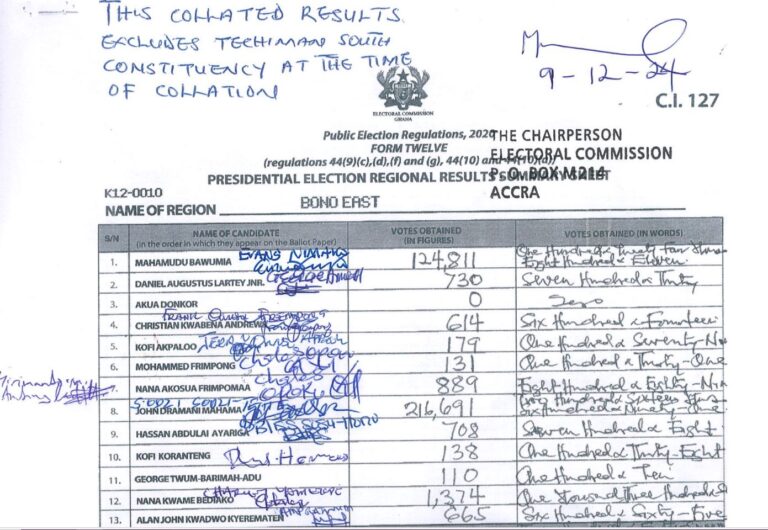 THIS COLLATED RESULTS
EXCLUDES TECHIMAN SOUTH
CONSTITUENCY AT THE TIME
OF COLLATION
9-12-24
C.I. 127
ELECTORAL COMMISSION
GHANA
Public Election Regulations, 2020
FORM TWELVE
(regulations 44(9)(c),(d),(f) and (g), 44(10)
THE CHAIRPERSON
ELECTORAL COMMISSION
P.O. BOX M214
ACCRA
PRESIDENTIAL ELECTION REGIONAL RESULTS SUMMARY SHEET
K12-0010
NAME OF REGION BONO EAST
S/N NAME OF CANDIDATE (in the order in which they appear on the Ballot Paper) VOTES OBTAINED (IN FIGURES) VOTES OBTAINED (IN WORDS)
1. MAHAMUDU BAWUMIA EVANS 124,811 One Hundred & Twenty Four
Eight Hundred & Eleven
2. DANIEL AUGUSTUS LARTEY JNR. 730 Seven Hundred & Thirty
3. AKUA DONKOR 0 Zero
4. CHRISTIAN KWABENA ANDREWS 614 Six Hundred & Fourteen
5. KOFI AKPALOO 179 One Hundred & Seventy-Ni
6. MOHAMMED FRIMPONG 131 One Hundred & Thirty-One
7. NANA AKOSUA FRIMPOMAA OPOKU 889 Eight Hundred & Eighty-Ni
8. JOHN DRAMANI MAHAMA 216,691 Two Hundred & Sixteen
Six Hundred & Ninety-One
9. HASSAN ABDULAI AYARIGA 708 Seven Hundred & Eight
10. KOFI KORANTENG 138 One Hundred & Thirty-Eight
11. GEORGE TWUM-BARIMAH-ADU 110 One Hundred & Ten
12. NANA KWAME BEDIAKO 1,374 One Thousand Three Hundred &
13. ALAN JOHN KWADWO KYEREMATEN 665 Six Hundred & Sixty-Five